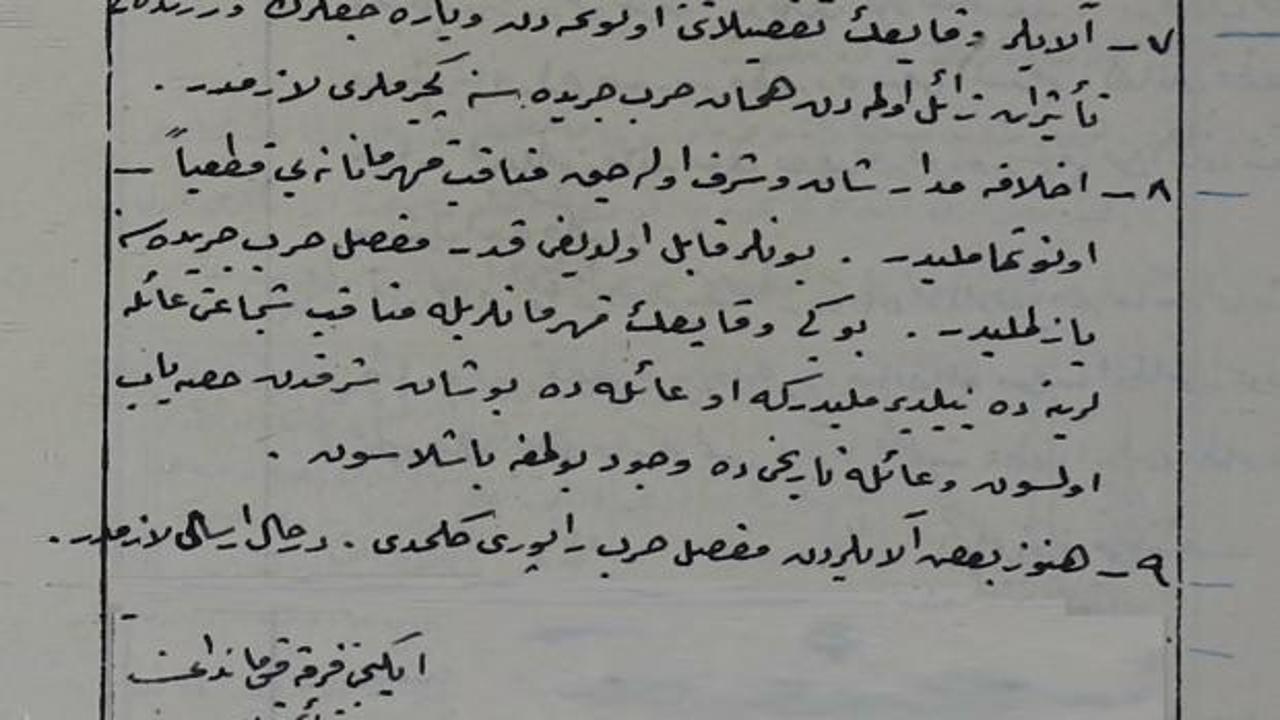 ٧ – آلایلر وقایعك تفصیلاتنی اونوتمه‌دن و یاره
تأثیراتی زائل اولمه‌دن همان حرب جریده‌سنه كچیرملری لازمدر .
٨ – اخلافه مدار شان و شرف اوله‌جق مناقب قهرمانانه‌یی قطعیاً –
اونوتماملیدر . بونلر قابل اولدیغی قدر مفصل حرب جریده‌سنه
یازلملیدر . بو كبی وقایعك قهرمانلریله مناقب شجاعتی عائله
لرینه ده بیلدیرملیدركه او عائله ده بو شان شرفدن حصه‌یاب
اولسون و عائله تاریخی ده وجود بولمغه باشلاسون .
٩ – هنوز بعض آلایلردن مفصل حرب راپوری كلمدی . درحال ارسالی لازمدر .
ایكنجی فرقه قوماندانی